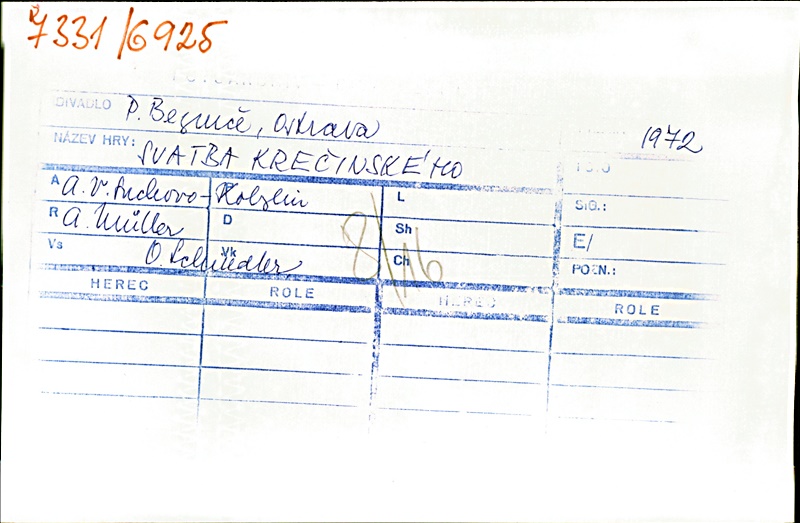 7331/6925
DIVADLO P. Bezruče, Ostrava 1972
NÁZEV HRY: SVATBA KREČINSKÉHO
A A. V. Suchovo-Kobylin L SIG.:
R A. Müller D Sh E/
Vs O. Schindler Vk Ch POZN.:
8/16
HEREC ROLE HEREC ROLE